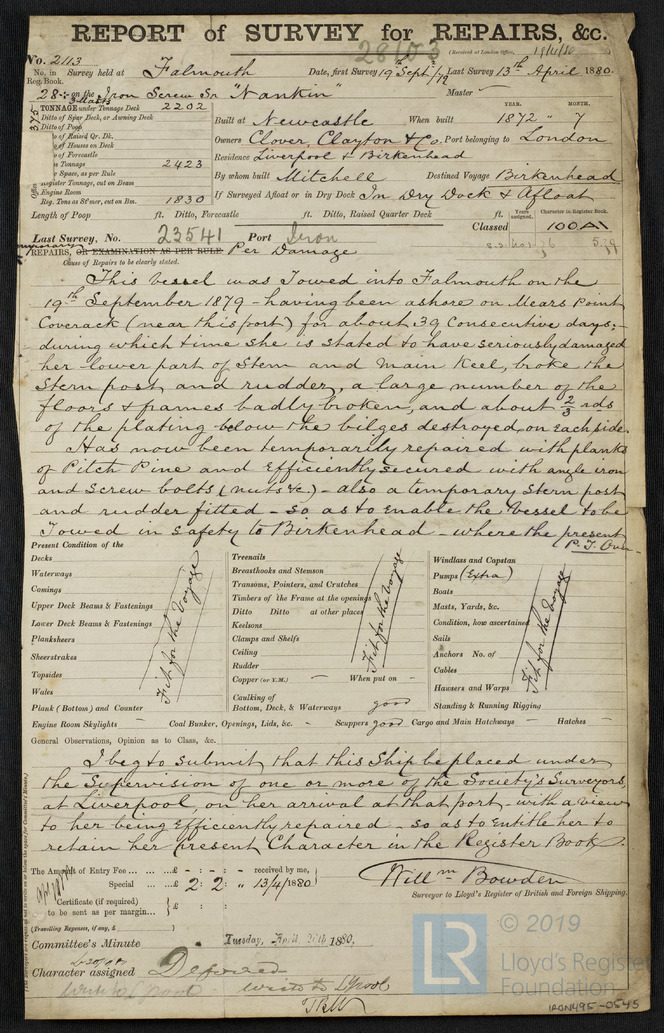 REPORT of SURVEY for REPAIRS, &c.
28103 (Received at London Office,
No. 2113
No. in Reg. Book. Survey held at Falmouth Date, first Survey 19th Sept /79 Last Survey 13th April 1880.
28 on the Iron Screw Sr "Nankin" Master
TONNAGE under Tonnage Deck 2202
Ditto of Spar Deck, or Awning Deck
Ditto of Poop
Ditto of Raised Qr. Dk.
of Houses on Deck
of Forecastle
Tonnage 2423
Space, as per Rule
Register Tonnage, cut on Beam
Engine Room
Reg. Tons as St'mer, cut on Bm. 1830
Built at Newcastle When built YEAR. 1872 MONTH. 7
Owners Clover, Clayton & Co. Port belonging to London
Residence Liverpool & Birkenhead
By whom built Mitchell Destined Voyage Birkenhead
If Surveyed Afloat or in Dry Dock In Dry Dock & Afloat
Length of Poop ft. Ditto, Forecastle ft. Ditto, Raised Quarter Deck ft.
Years assigned. Character in Register Book.
Classed 100A1
Last Survey, No. 23541 Port Iron
Temporary REPAIRS, OR EXAMINATION AS PER RULE Per Damage
Cause of Repairs to be clearly stated.
This vessel was Towed into Falmouth on the
19th September 1879 - having been ashore on Mears Point
Coverack (near this port) for about 39 Consecutive days;-
during which time she is stated to have seriously damaged
her lower part of Stem and main Keel, broke the
Stern post, and rudder, a large number of the
floors & frames badly broken, and about 2/3 rds
of the plating below the bilges destroyed, on Each side.
Has now been temporarily repaired with planks
of Pitch Pine and Efficiently secured with angle iron
and screw bolts (nuts &c) - also a temporary Stern post
and rudder fitted - so as to enable the Vessel to be
Towed in safety to Birkenhead - where the present
P. T. Over
Present Condition of the
Decks
Waterways
Comings
Upper Deck Beams & Fastenings
Lower Deck Beams & Fastenings
Planksheers
Sheerstrakes
Topsides
Wales
Plank (Bottom) and Counter
Fit for the Voyage
Treenails
Breasthooks and Stemson
Transoms, Pointers, and Crutches
Timbers of the Frame at the openings
Ditto Ditto at other places
Keelsons
Clamps and Shelfs
Ceiling
Rudder
Copper (or Y.M.) When put on
Caulking of Bottom, Deck, & Waterways good
Fit for the Voyage
Windlass and Capstan
Pumps (Extra)
Boats
Masts, Yards, &c.
Condition, how ascertained
Sails
Anchors No. of
Cables
Hawsers and Warps
Standing & Running Rigging
Fit for the Voyage
Engine Room Skylights — Coal Bunker, Openings, Lids, &c. — Scuppers good Cargo and Main Hatchways — Hatches —
General Observations, Opinion as to Class, &c.
I beg to submit that this Ship be placed under
the Supervision of one or more of the Society's Surveyors,
at Liverpool, on her arrival at that port - with a view
to her being Efficiently repaired - so as to Entitle her to
retain her present Character in the Register Book.
The Amount of Entry Fee ... £ - : - : - received by me,
Special ... £ 2 : 2 : " 13/4/1880
Certificate (if required) to be sent as per margin... £ : :
(Travelling Expenses, if any, £ )
Willm Bowden
Surveyor to Lloyd's Register of British and Foreign Shipping.
Committee's Minute Tuesday, April 20th 1880.
Character assigned Deferred
Write to L'pool
LR
© 2019
Lloyd's Register
Foundation
IRON495-0545